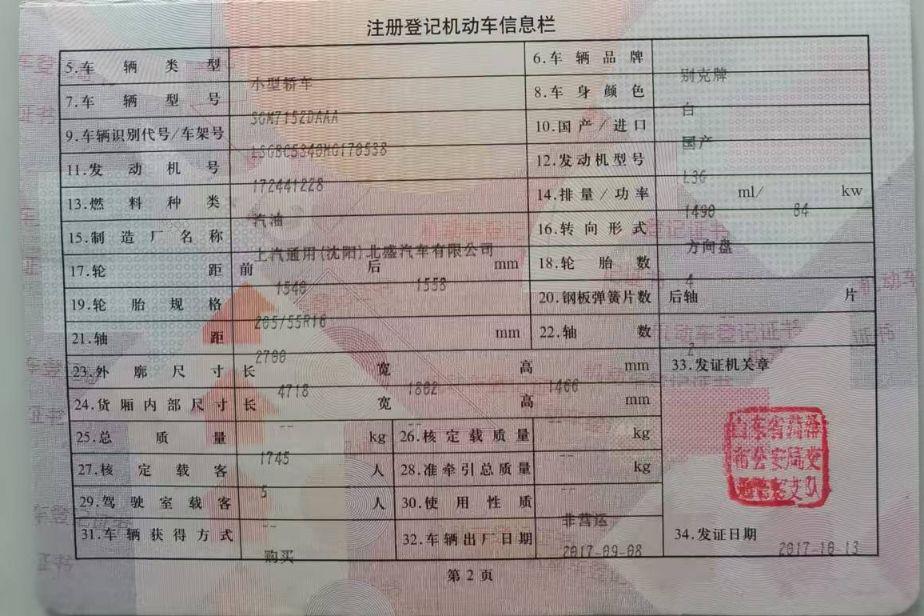 注册登记机动车信息栏
5.车辆类型 小型轿车 6.车辆品牌 别克牌
7.车辆型号 SGM7152DAAA 8.车身颜色 白
9.车辆识别代号/车架号 LSGBC5340HG178538 10.国产/进口 国产
11.发动机号 172441228 12.发动机型号 L3G
13.燃料种类 汽油 14.排量/功率 1490 ml/ 84 kw
15.制造厂名称 上汽通用(沈阳)北盛汽车有限公司 16.转向形式 方向盘
17.轮距 前 1540 后 1558 mm 18.轮胎数 4
19.轮胎规格 205/55R16 20.钢板弹簧片数 后轴 -- 片
21.轴距 2700 mm 22.轴数 2
23.外廓尺寸 长 4718 宽 1802 高 1466 mm 33.发证机关章
24.货厢内部尺寸 长 -- 宽 -- 高 -- mm
25.总质量 1745 kg 26.核定载质量 -- kg
27.核定载客 5 人 28.准牵引总质量 -- kg
29.驾驶室载客 -- 人 30.使用性质 非营运
31.车辆获得方式 购买 32.车辆出厂日期 2017-09-08 34.发证日期 2017-10-13
山东省菏泽
市公安局交
通警察支队
第2页